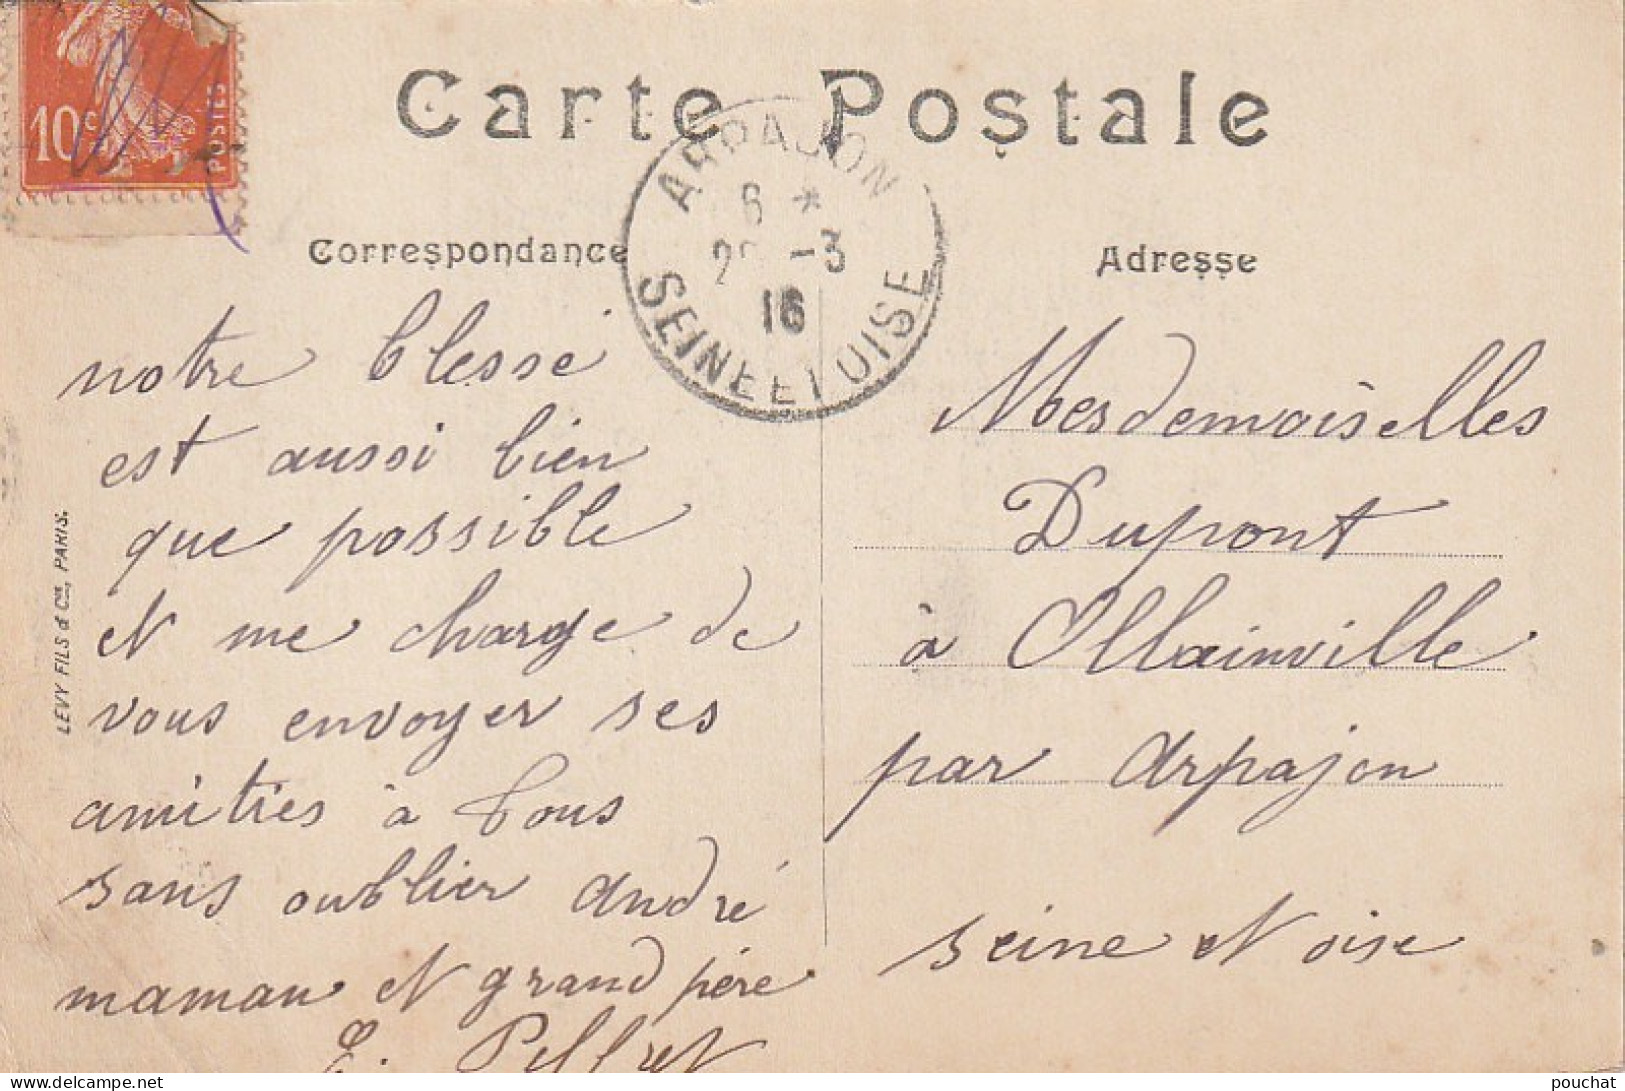 10c
POSTES
Carte Postale
ARPAJON
6 *
-3
16
SEINE ET OISE
Correspondance
notre blessé
est aussi bien
que possible
et me charge de
vous envoyer ses
amitiés à tous
sans oublier André
maman et grand père
E.
Adresse
Mesdemoiselles
Dupont
à Ollainville
par Arpajon
Seine et Oise
LEVY FILS & Cie, PARIS.
pouchat